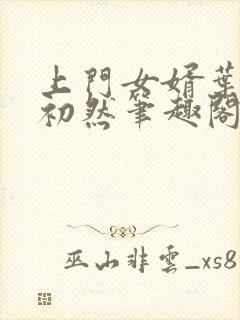 上門女婿葉
初然筆趣閣
巫山非雲_xs8